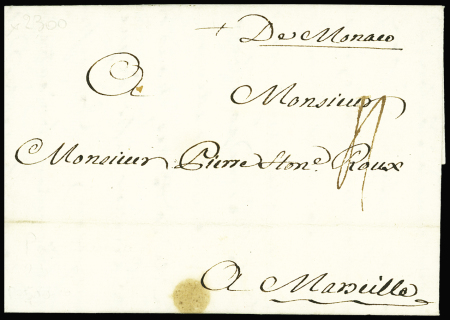 £2300
De Monaco
A Monsieur
Monsieur Pierre Hon.e Roux
A Marseille